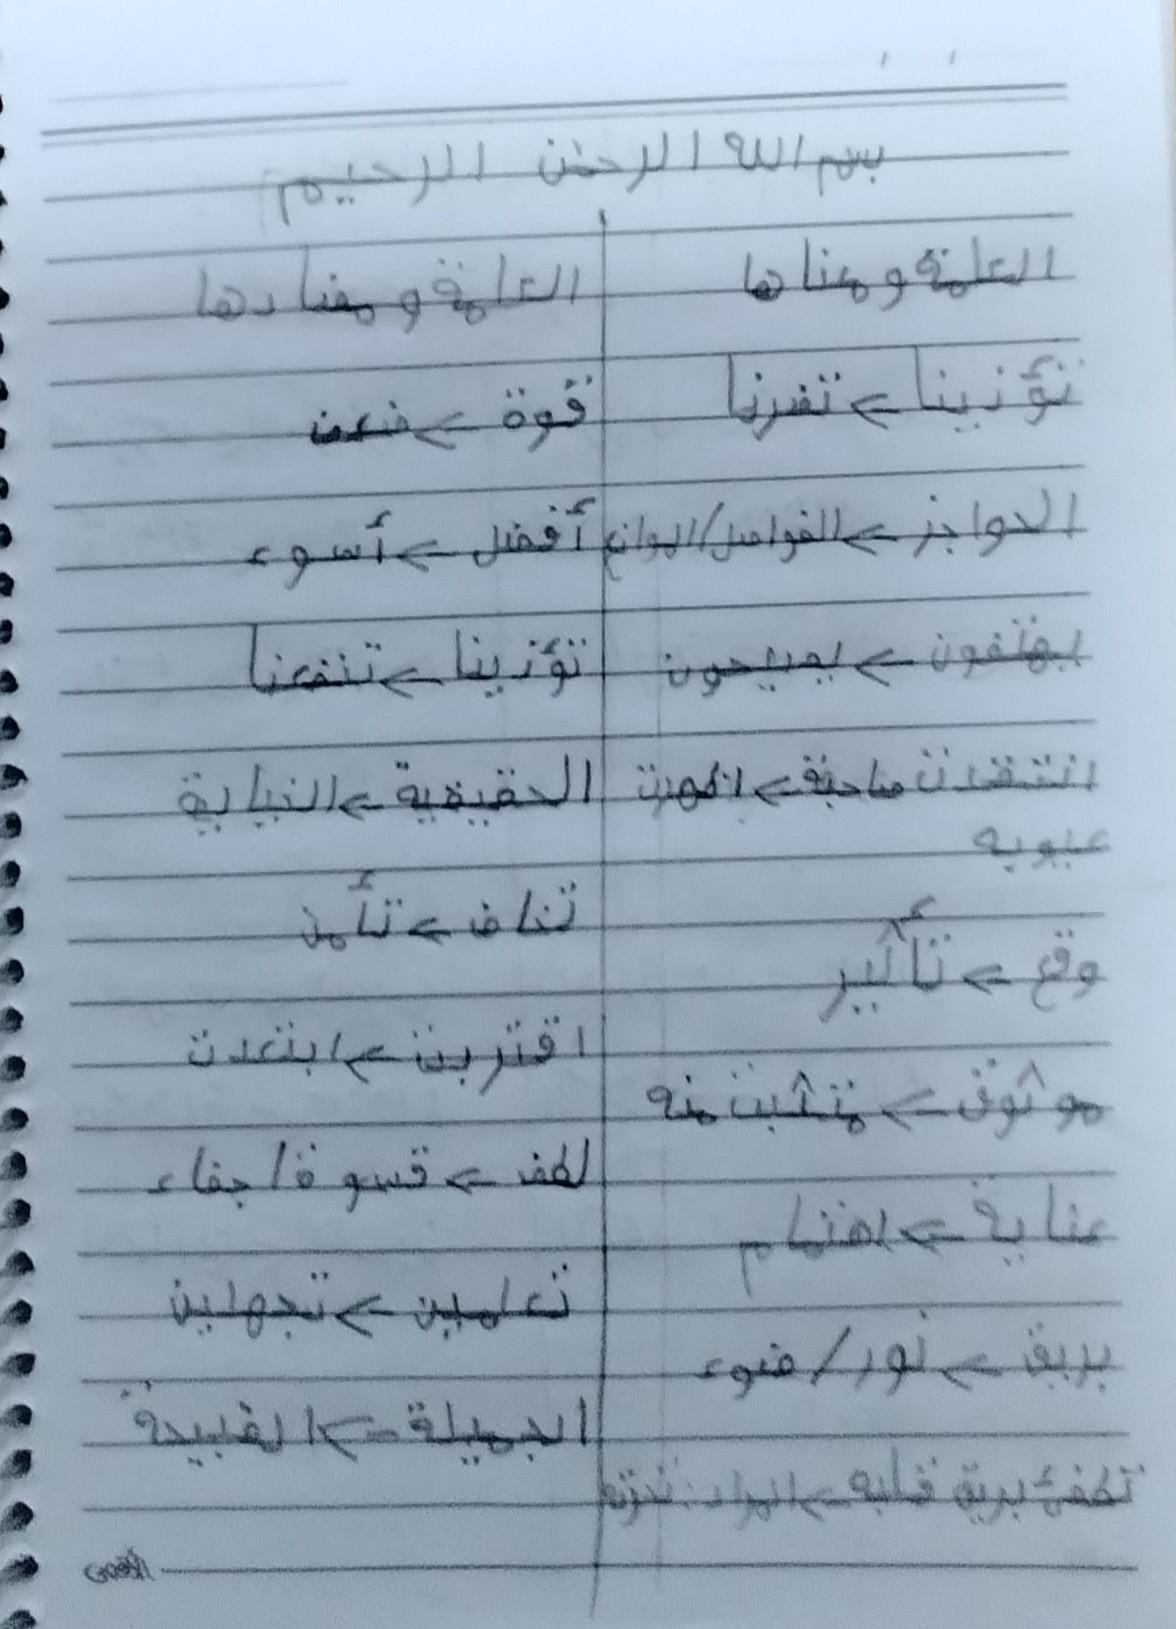 بسم الله الرحمن الرحيم
الكلمة ومعناها
تؤذينا > تضرنا
الحواجز > الفواصل/الموانع
يهتفون > يصيحون
انتقدت صاحبة > اظهرت
عيوبه
وقع > تأثير
موثوق > متثبت منه
عناية > اهتمام
بريق > نور/ضوء
تطفئ بريق قلبه > المراد:
الكلمة ومضادها
قوة > ضعف
أفضل > أسوء
تؤذينا > تنفعنا
الحقيقية > الخيالية
تخاف > تأمن
اقتربت > ابتعدت
لطف > قسوة/جفاء
تعلمين > تجهلين
الجميلة > القبيحة